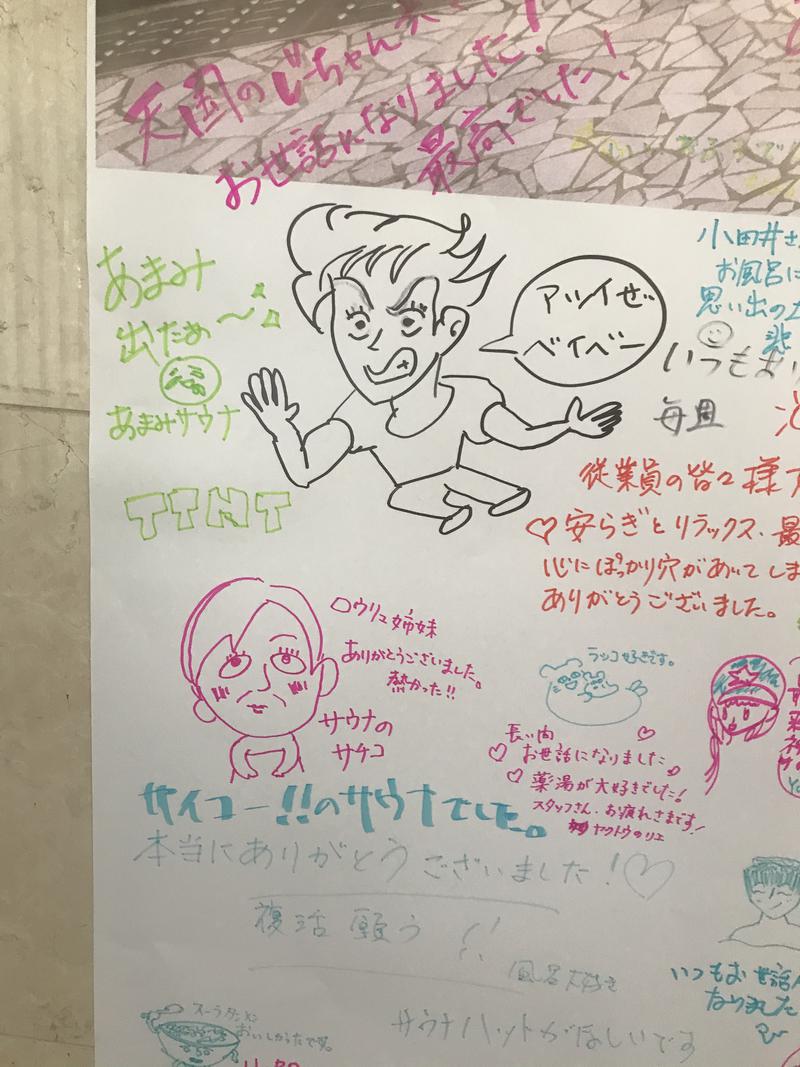 天国のじーちゃん
お世話になりました!
最高でした!
あまみ
出たぁ〜
あまみサウナ
TTNT
アツイぜ
ベイベー
小田井さ
お風呂に
思い出の
いつもあり
毎週
従業員の皆々様
♡安らぎとリラックス、最
心にぽっかり穴があいてしま
ありがとうございました。
ロウリュ姉妹
ありがとうございました。
熱かった!!
サウナの
サチコ
ラッコ好きです。
長い間
お世話になりました
♡薬湯が大好きでした!
スタッフさん、お疲れさまです!
ヤクトウのリエ
サイコー!!のサウナでした。
本当にありがとうございました!♡
復活願う!!
風呂大好き
いつもお世話に
なりました
スーラータンメン
おいしかったです。
サウナハットがほしいです